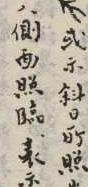 或示斜日所照
側面照臨、表示